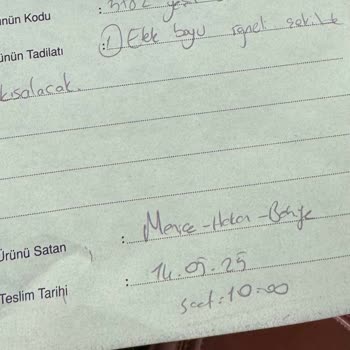 ünün Kodu :
ünün Tadilatı : 1 Etek boyu igneli şekilde
kısalacak.
Ürünü Satan : Merve-Hakan-
Teslim Tarihi : 14.05.25
saat:10:00